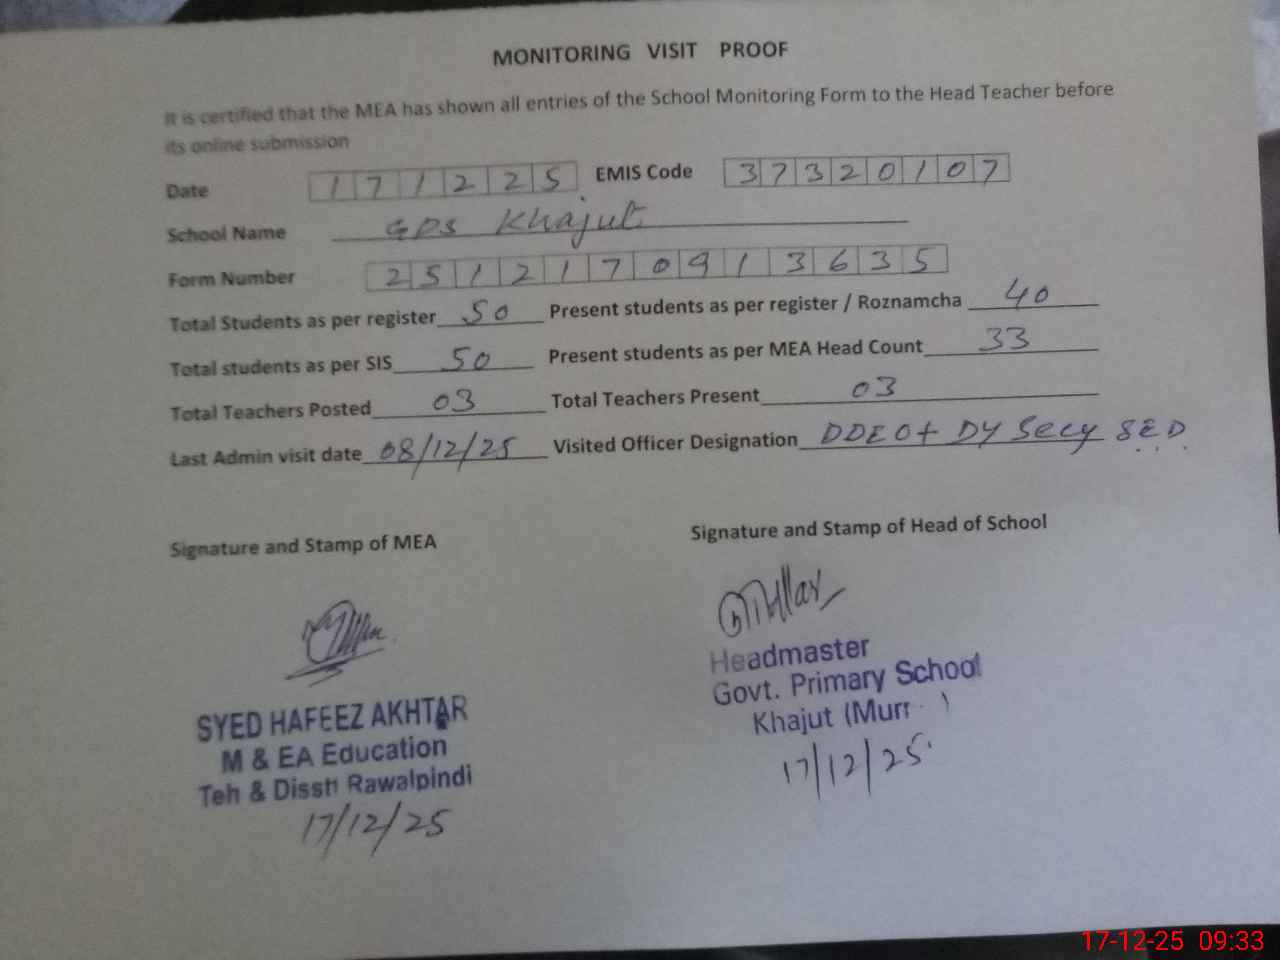 MONITORING VISIT PROOF
It is certified that the MEA has shown all entries of the School Monitoring Form to the Head Teacher before
its online submission
Date 171225 EMIS Code 37320107
School Name GPS Khajut
Form Number 2512170913635
Total Students as per register 50 Present students as per register / Roznamcha 40
Total students as per SIS 50 Present students as per MEA Head Count 33
Total Teachers Posted 03 Total Teachers Present 03
Last Admin visit date 08/12/25 Visited Officer Designation DDEO+ DY Secy SED
Signature and Stamp of MEA Signature and Stamp of Head of School
Headmaster
Govt. Primary School
Khajut (Murr )
17/12/25
SYED HAFEEZ AKHTAR
M & EA Education
Teh & Disstt Rawalpindi
17/12/25
17-12-25 09:33